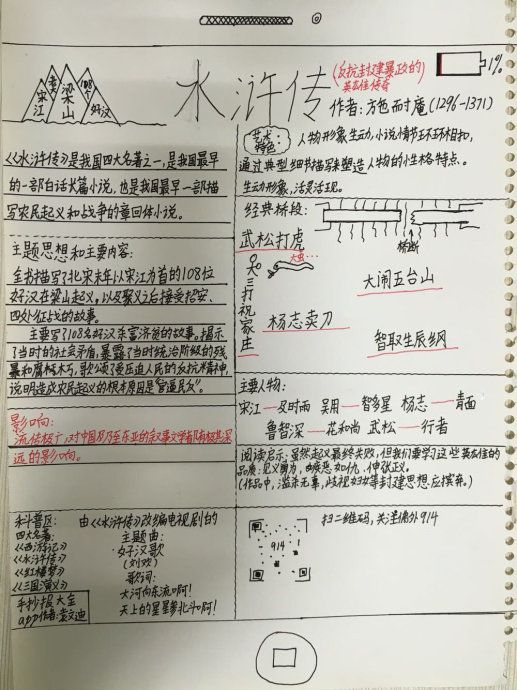 1%
宋江
李逵
梁山
108个
好汉
水浒传
(反抗封建暴政的
英雄传奇)
作者:施耐庵(1296-1371)
《水浒传》是我国四大名著之一,是我国最早
的一部白话长篇小说,也是我国最早一部描
写农民起义和战争的章回体小说。
艺术
特色
人物形象生动,小说情节环环相扣,
通过典型细节描写来塑造人物的性格特点。
生动形象,活灵活现。
主题思想和主要内容:
全书描写了北宋末年以宋江为首的108位
好汉在梁山起义,以及聚义之后接受招安、
四处征战的故事。
主要写了108名好汉杀富济贫的故事。揭示
了当时的社会矛盾,暴露了当时统治阶级的残
暴和腐朽,歌颂了受压迫人民的反抗精神,
说明造成农民起义的根本原因是"官逼民反"。
经典桥段:
桥断
武松打虎
大虫…
三打祝家庄
大闹五台山
杨志卖刀
智取生辰纲
影响:
流传极广,对中国乃至东亚的叙事文学都有极其深
远的影响。
主要人物:
宋江——及时雨 吴用——智多星 杨志——青面
鲁智深——花和尚 武松——行者
阅读启示:虽然起义最终失败,但我们要学习这些英雄的
品质:见义勇为,疾恶如仇,伸张正义。
(作品中,滥杀无辜,歧视妇女等封建思想应摈弃。)
科普区:
四大名著:
《西游记》
《水浒传》
《红楼梦》
《三国演义》
手抄报大全
app作者:姜文迪
由《水浒传》改编电视剧的
主题曲:
好汉歌
(刘欢)
歌词:
大河向东流啊!
天上的星星参北斗啊!
914
扫二维码,关注偶外914